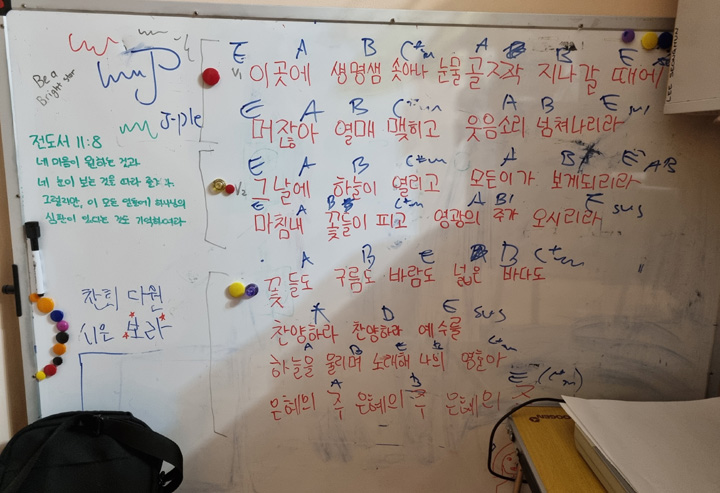 Be a
Bright star
J-ple
전도서 11:8
네 마음이 원하는 길과
네 눈이 보는 것을 따라
그럴지만, 이 모든 일들에 하나님의
심판이 있다는 것도 기억하여라
찬희 다원
시온 보라
E A B C#m A B E
V1 이곳에 생명샘 솟아나 눈물 골짜기 지나갈 때에
E A B C#m A B E sus
머잖아 열매 맺히고 웃음소리 넘쳐나리라
E A B C#m A B E AB
V2 그날에 하늘이 열리고 모든이가 보게되리라
A B C#m A B E sus
마침내 꽃들이 피고 영광의 주가 오시리라
A B E B C#m
꽃들도 구름도 바람도 넓은 바다도
A D E sus
찬양하라 찬양하라 예수를
A B E C#m
하늘을 울리며 노래해 나의 영혼아
A B E (C#m)
은혜의 주 은혜의 주 은혜의 주